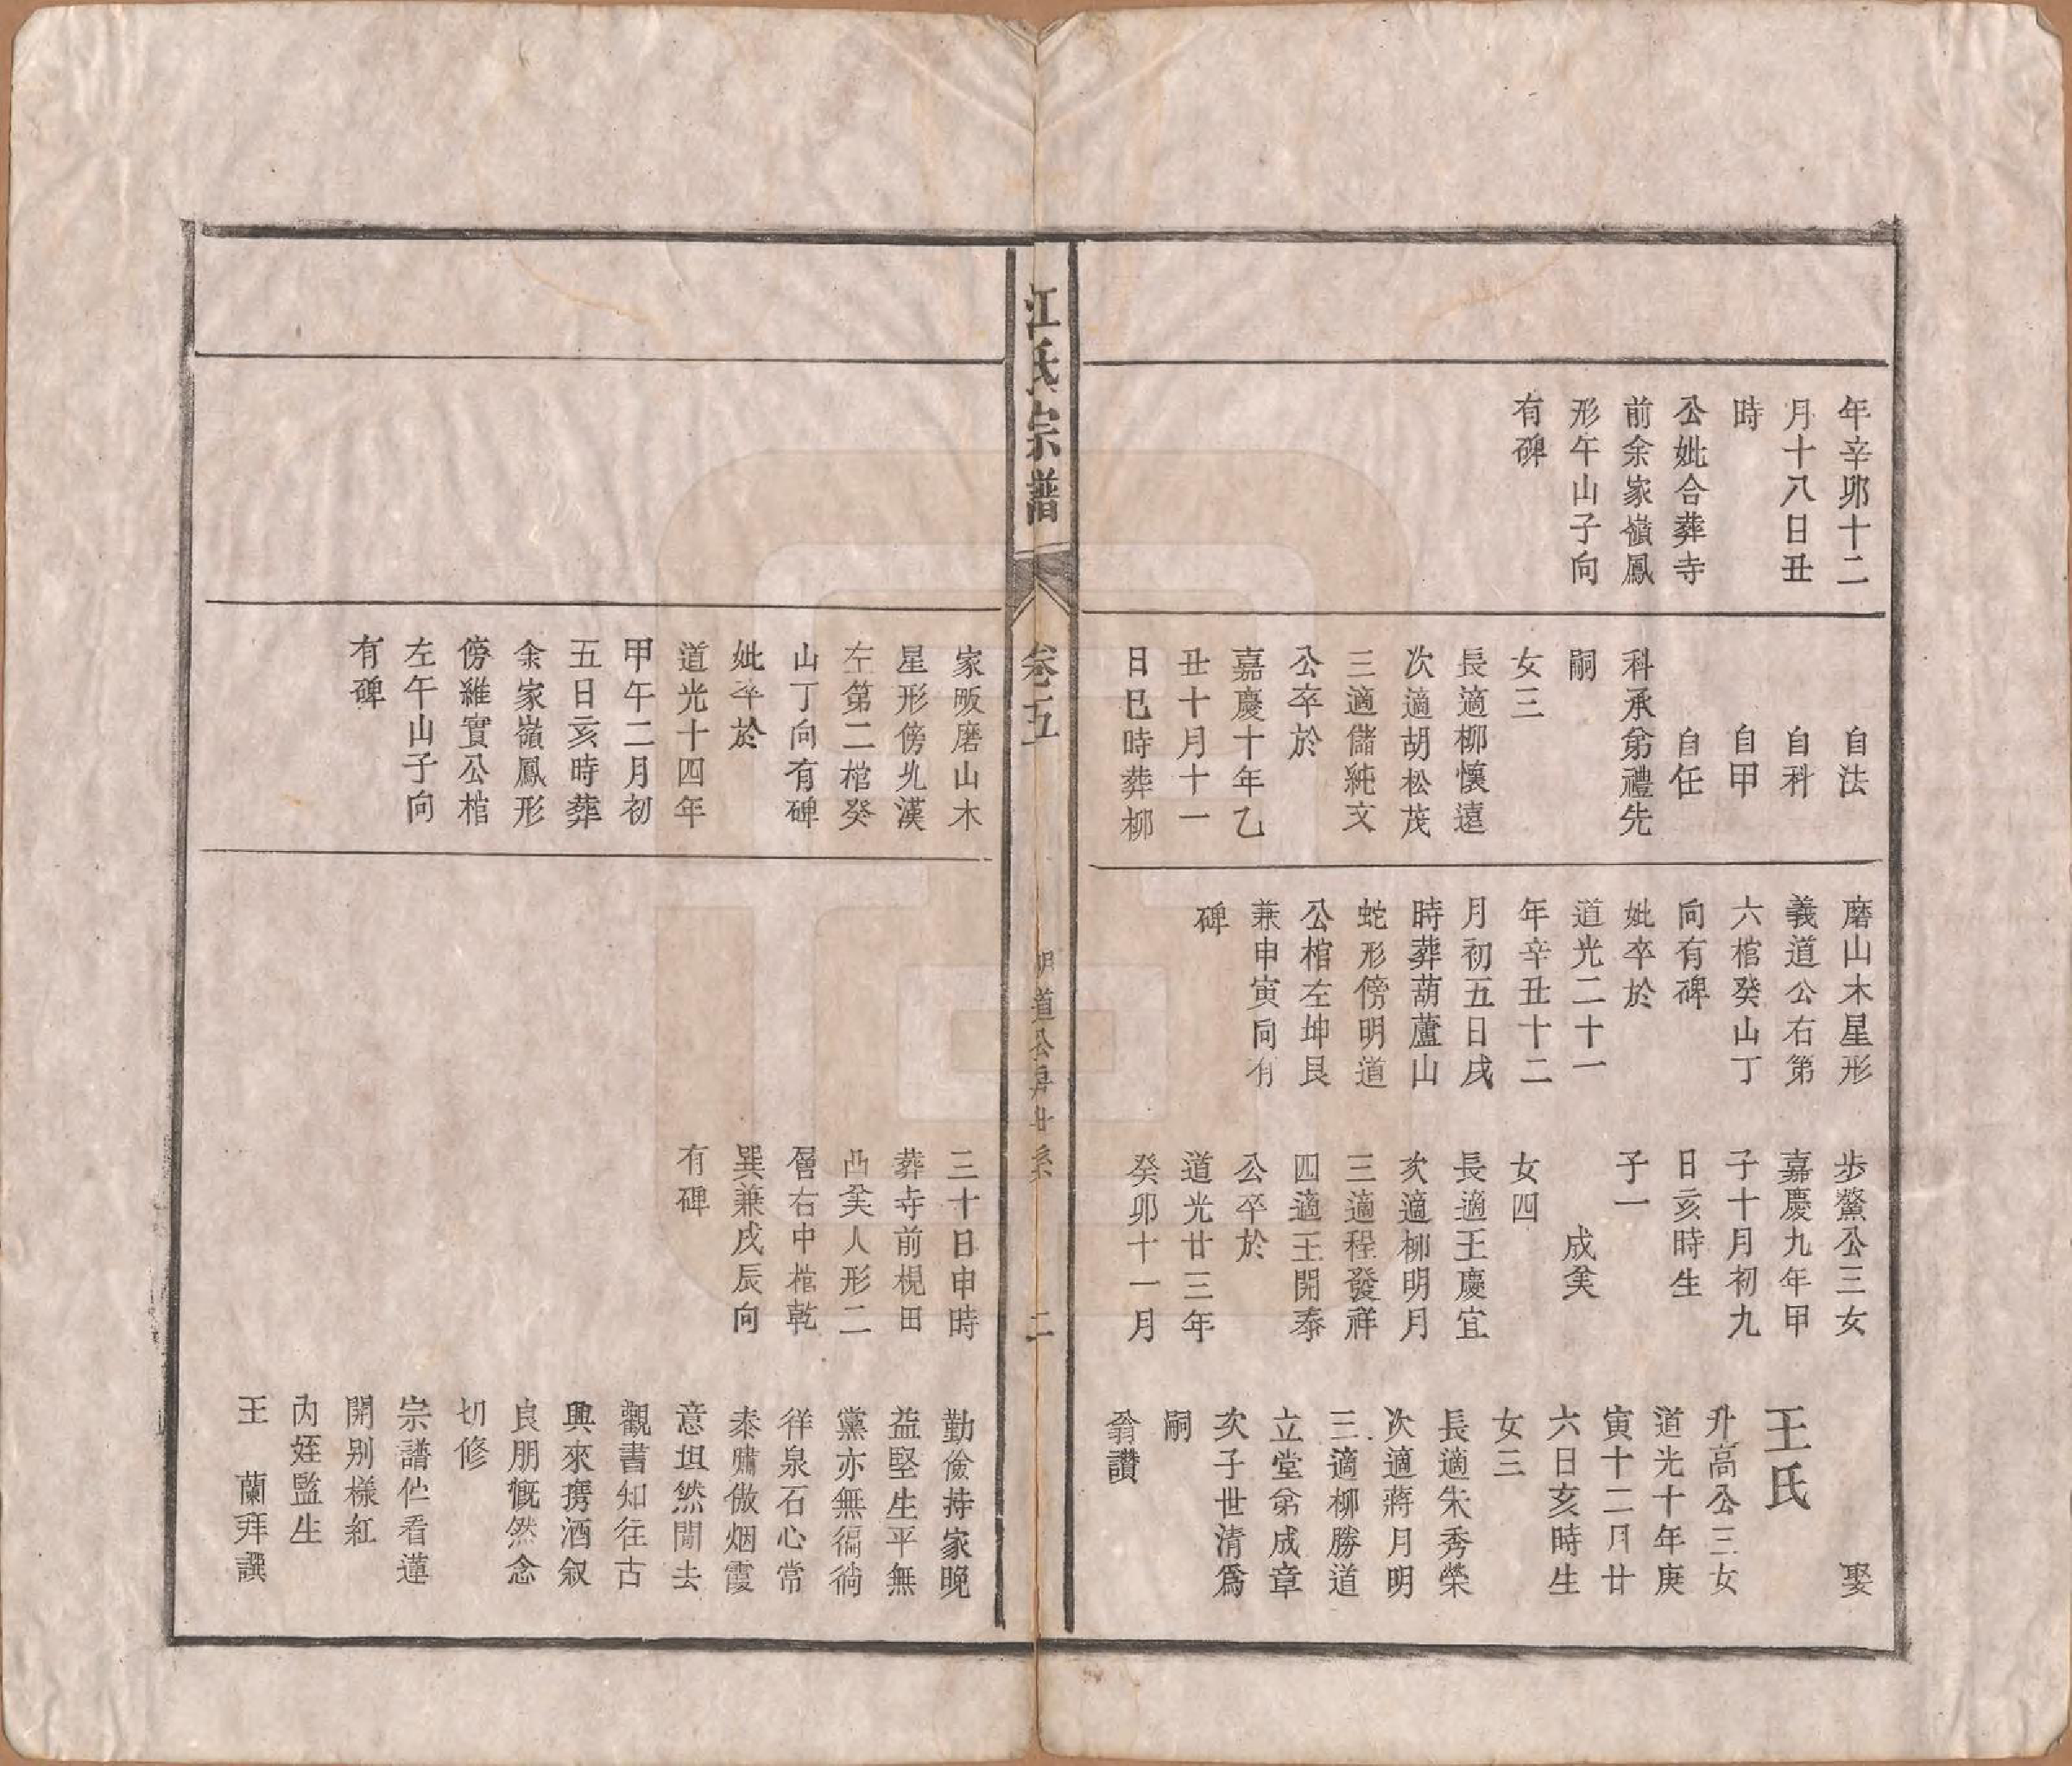 年辛卯十二
月十八日丑
時
公妣合葬寺
前余家嶺鳳
形午山子向
有碑
自法
自科
自甲
自任
科承弟禮先
嗣
女三
長適柳懷遠
次適胡松茂
三適儲純文
公卒於
嘉慶十年乙
丑十月十一
日巳時葬柳
磨山木星形
義道公右第
六棺癸山丁
向有碑
妣卒於
道光二十一
年辛丑十二
月初五日戌
時葬葫蘆山
蛇形傍明道
公棺左坤艮
兼申寅向有
碑
步鰲公三女
嘉慶九年甲
子十月初九
日亥時生
子一
成美
女四
長適王慶宜
次適柳明月
三適程發祥
四適王開泰
公卒於
道光廿三年
癸卯十一月
娶
王氏
升高公三女
道光十年庚
寅十二月廿
六日亥時生
女三
長適朱秀榮
次適蔣月明
三適柳勝道
立堂弟成章
次子世清爲
嗣
翁讚
江氏宗譜
卷五
明道公房廿系
二
家畈磨山木
星形傍兆漢
左第二棺癸
山丁向有碑
妣卒於
道光十四年
甲午二月初
五日亥時葬
余家嶺鳳形
傍維實公棺
左午山子向
有碑
三十日申時
葬寺前梘田
凸美人形二
層右中棺乾
巽兼戌辰向
有碑
勤儉持家晚
益堅生平無
黨亦無偏徜
徉泉石心常
泰嘯傲烟霞
意坦然閒去
觀書知往古
興來携酒叙
良朋慨然念
切修
宗譜伫看蓮
開别樣紅
内姪監生
王蘭拜譔